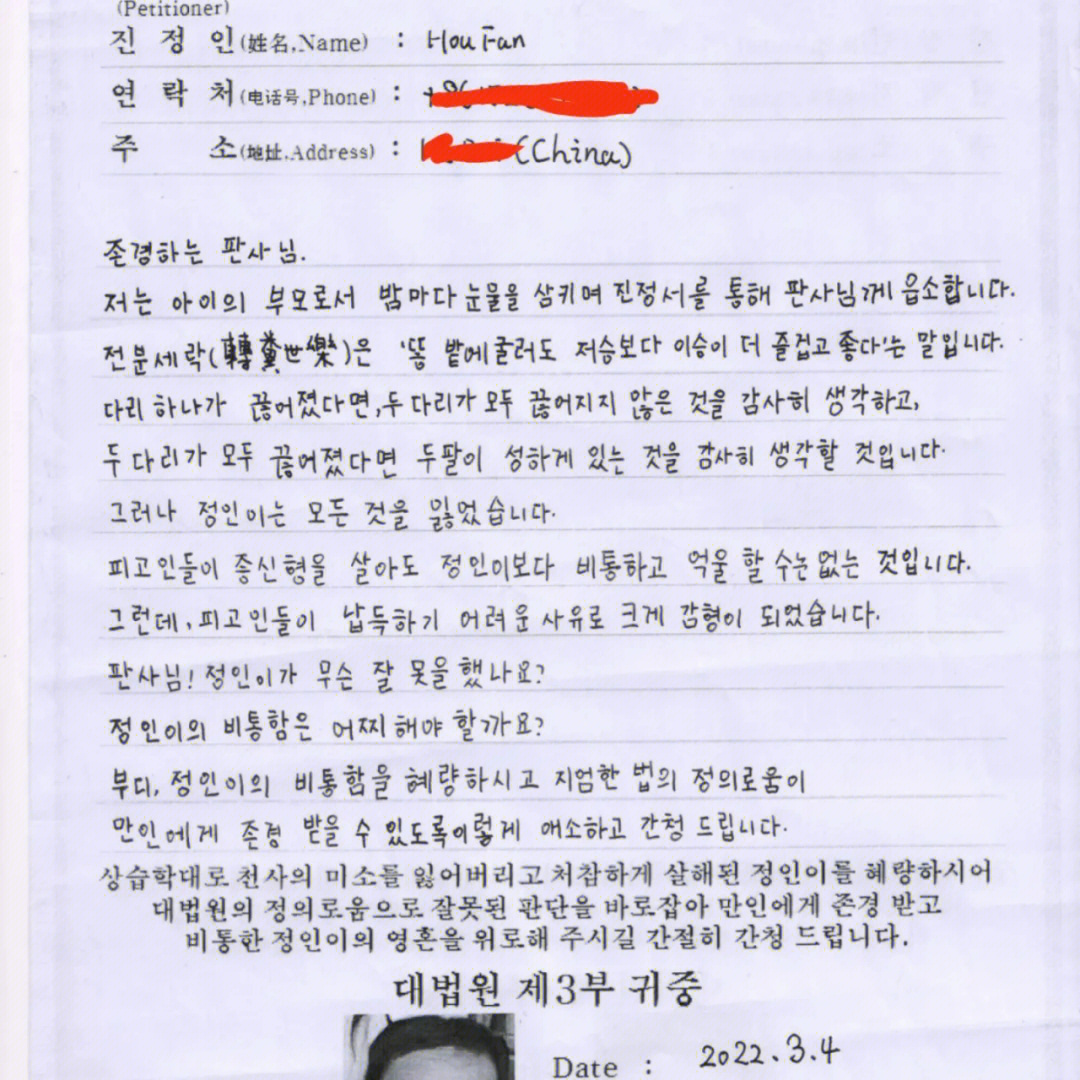 (Petitioner)
진 정 인(姓名,Name) : Hou Fan
연 락 처(电话号,Phone) :
주 소(地址.Address) : (China)
존경하는 판사님.
저는 아이의 부모로서 밤마다 눈물을 삼키며 진정서를 통해 판사님께 읍소합니다.
전분세락(轉糞世樂)은 '똥 밭에 굴러도 저승보다 이승이 더 즐겁고 좋다'는 말입니다.
다리 하나가 끊어졌다면, 두 다리가 모두 끊어지지 않은 것을 감사히 생각하고,
두 다리가 모두 끊어졌다면 두팔이 성하게 있는 것을 감사히 생각할 것입니다.
그러나 정인이는 모든 것을 잃었습니다.
피고인들이 종신형을 살아도 정인이보다 비통하고 억울 할 수는 없는 것입니다.
그런데, 피고인들이 납득하기 어려운 사유로 크게 감형이 되었습니다.
판사님! 정인이가 무슨 잘 못을 했나요?
정인이의 비통함은 어찌 해야 할까요?
부디, 정인이의 비통함을 혜량하시고 지엄한 법의 정의로움이
만인에게 존경 받을 수 있도록 이렇게 애소하고 간청 드립니다.
상습학대로 천사의 미소를 잃어버리고 처참하게 살해된 정인이를 혜량하시어
대법원의 정의로움으로 잘못된 판단을 바로잡아 만인에게 존경 받고
비통한 정인이의 영혼을 위로해 주시길 간절히 간청 드립니다.
대법원 제3부 귀중
Date : 2022.3.4